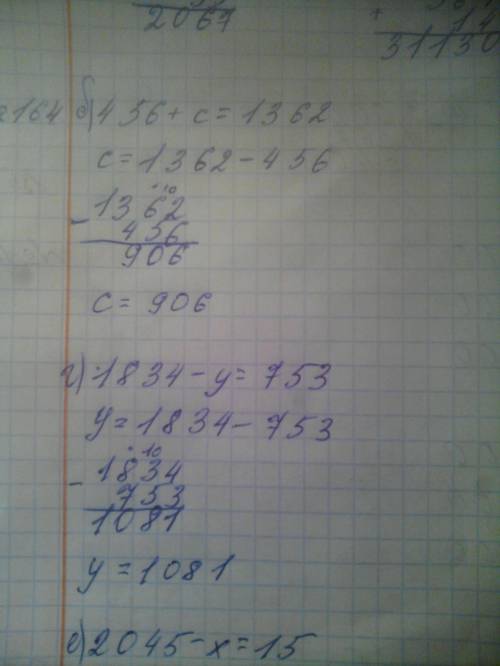 2067
+ 14
31130
164 б) 456 + c = 1362
c = 1362 - 456
10
- 1362
456
906
c = 906
г) 1834 - y = 753
y = 1834 - 753
10
- 1834
753
1081
y = 1081
е) 2045 - x = 15